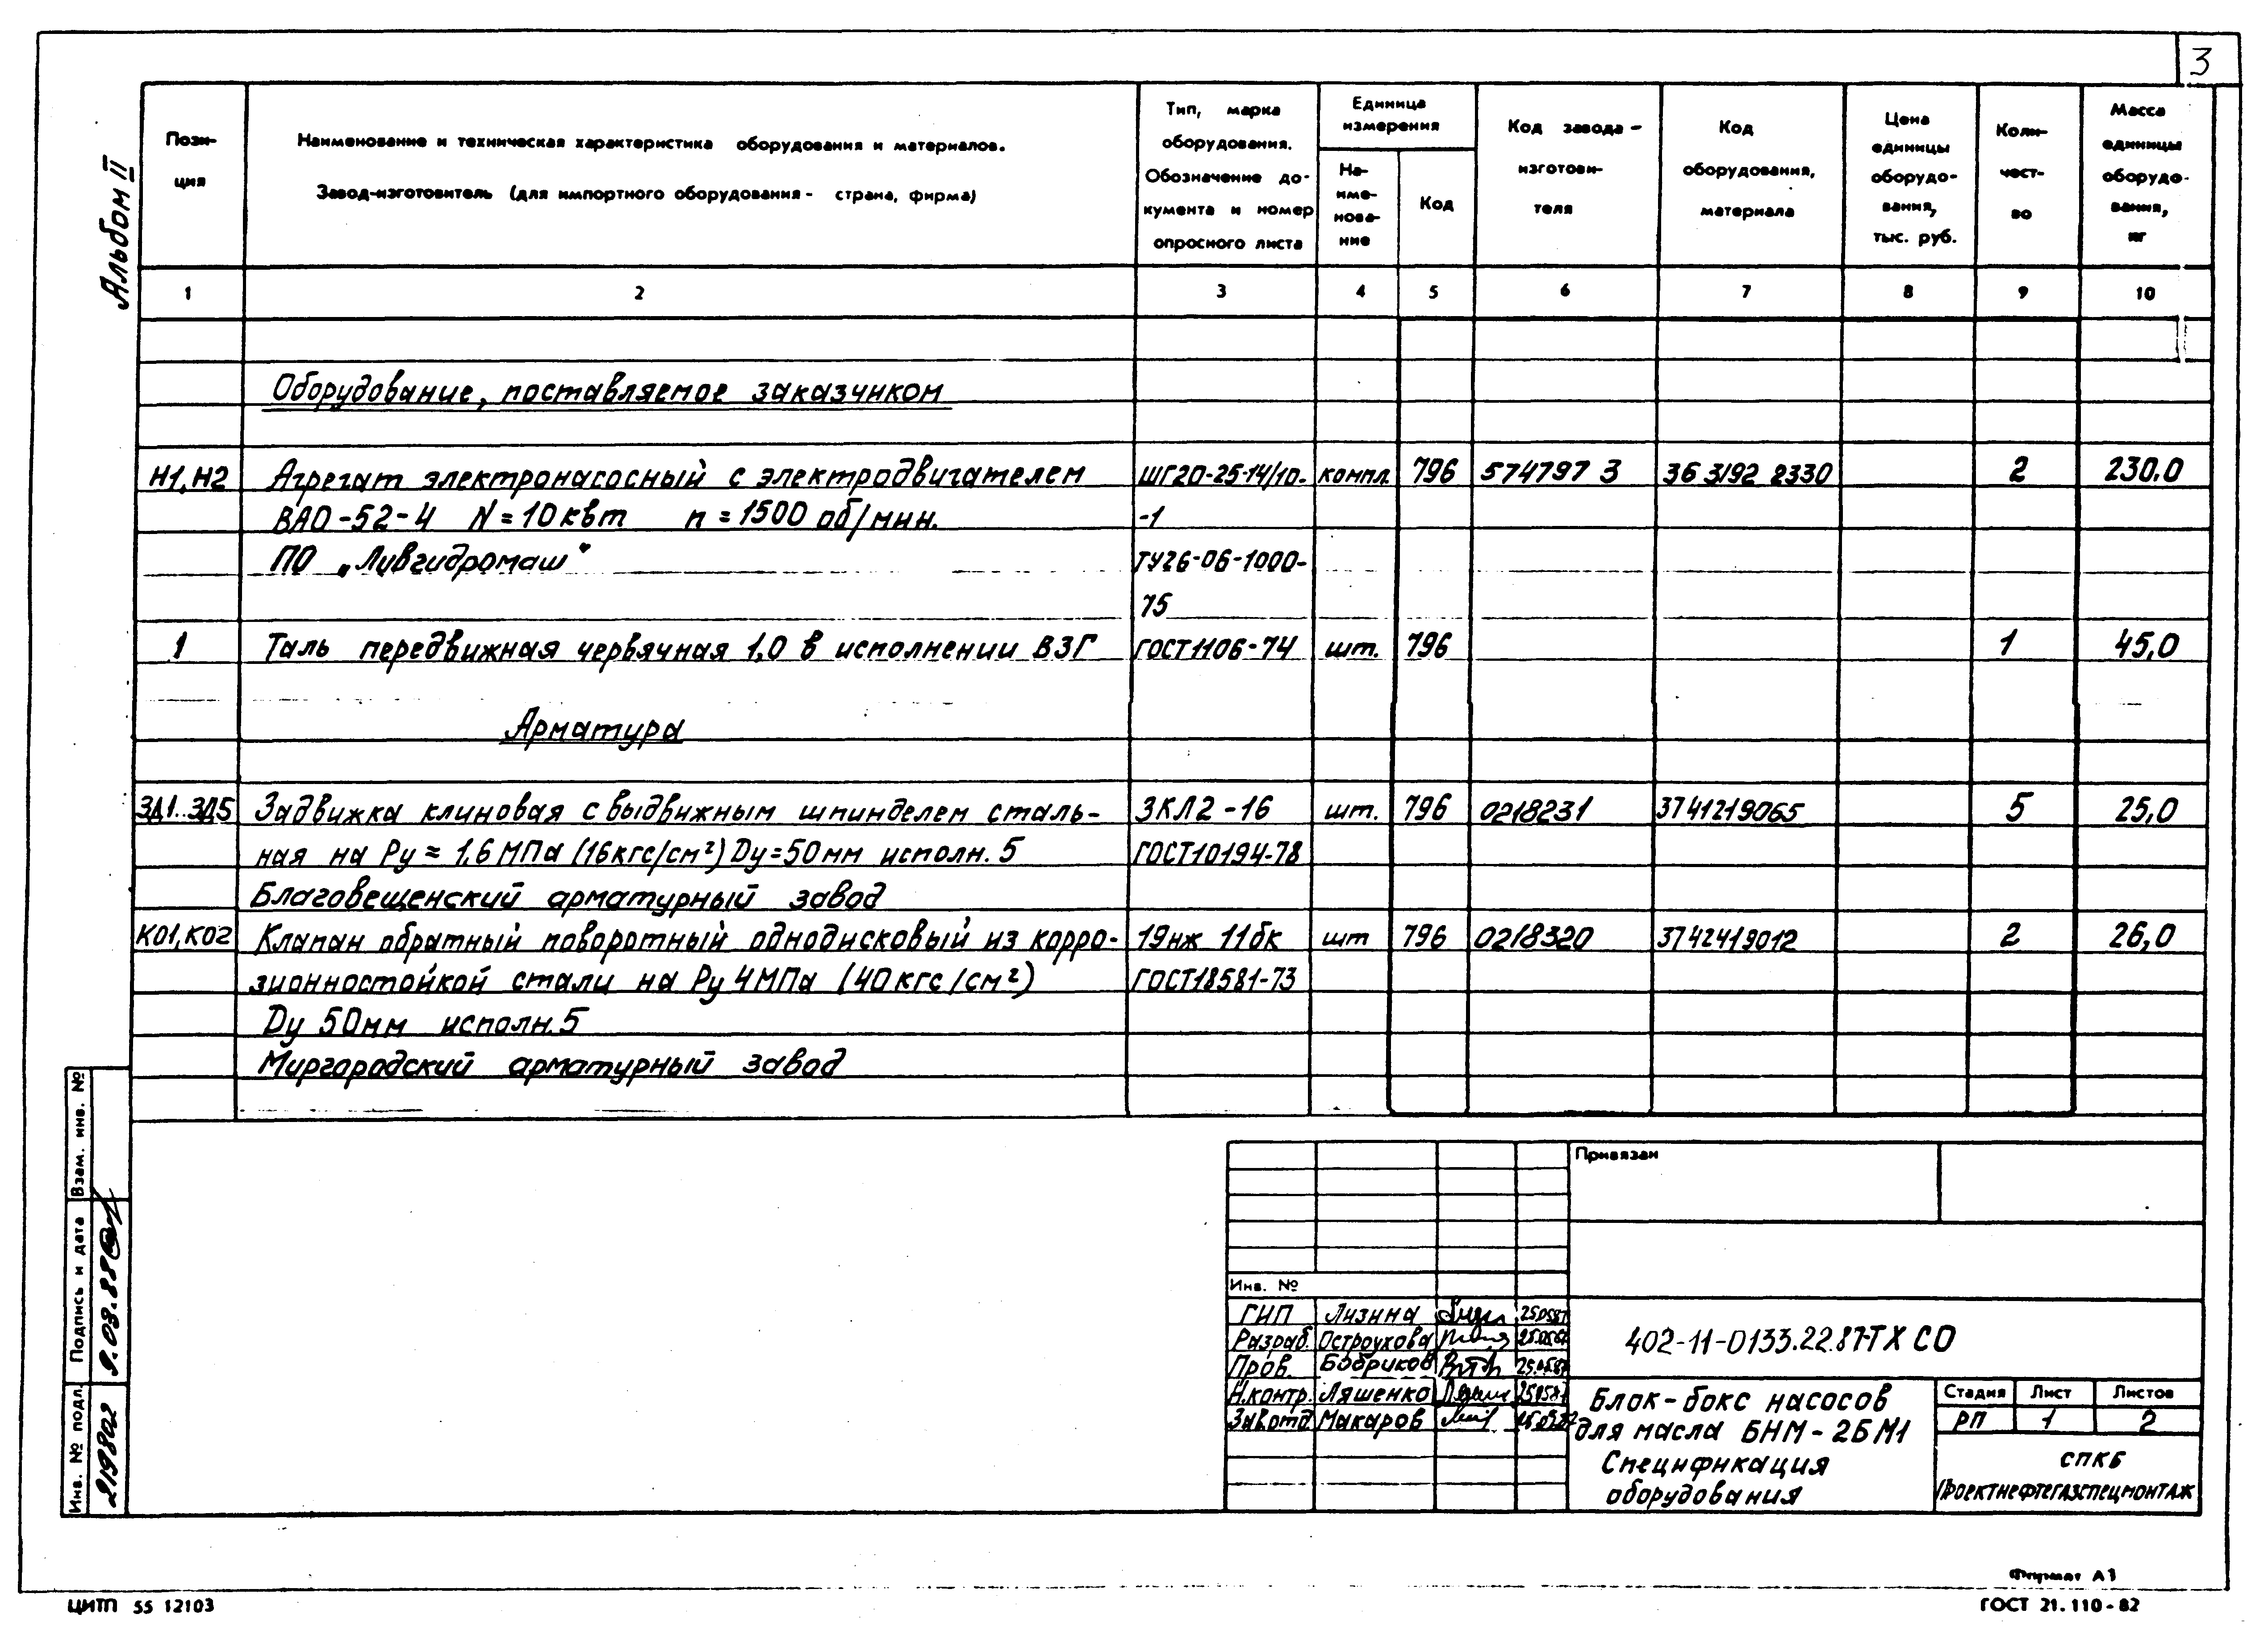 3
Альбом II
Пози-
ция
Наименование и техническая характеристика оборудования и материалов.
Завод-изготовитель (для импортного оборудования - страна, фирма)
Тип, марка
оборудования.
Обозначение до-
кумента и номер
опросного листа
Единица
измерения
На-
име-
нова-
ние
Код
Код завода -
изготови-
теля
Код
оборудования,
материала
Цена
единицы
оборудо-
вания,
тыс. руб.
Коли-
чест-
во
Масса
единицы
оборудо-
вания,
кг
1 2 3 4 5 6 7 8 9 10
Оборудование, поставляемое заказчиком
Н1,Н2 Агрегат электронасосный с электродвигателем ШГ20-25-14/10- компл. 796 574797 3 36 3192 2330 2 230.0
ВАО-52-4 N=10квт n=1500 об/мин. -1
ПО „Ливгидромаш" ТУ26-06-1000-
75
1 Таль передвижная червячная 1,0 в исполнении ВЗГ ГОСТ1106-74 шт. 796 1 45,0
Арматура
ЗД1..ЗД5 Задвижка клиновая с выдвижным шпинделем сталь- ЗКЛ2-16 шт. 796 0218231 3741219065 5 25,0
ная на Ру = 1,6 МПа (16кгс/см²) Dу=50мм исполн. 5 ГОСТ10194-78
Благовещенский арматурный завод
К01,К02 Клапан обратный поворотный однодисковый из корро- 19нж 11бк шт 796 0218320 3742419012 2 26,0
зионностойкой стали на Ру 4МПа (40кгс/см²) ГОСТ18581-73
Dу 50мм исполн.5
Миргородский арматурный завод
Взам. инв. №
Подпись и дата
9.03.88
Инв. № подл.
219802
Привязан
Инв. №
ГИП Лизина
Разраб. Остроухова
Пров. Бобриков
Н.контр. Ляшенко
Зав.отд. Макаров
402-11-0133.22.87-ТХ СО
Блок-бокс насосов
для масла БНМ-2БМ1
Спецификация
оборудования
Стадия Лист Листов
РП 1 2
СПКБ
Проектнефтегазспецмонтаж
Формат А3
ЦИТП 55 12103
ГОСТ 21.110-82